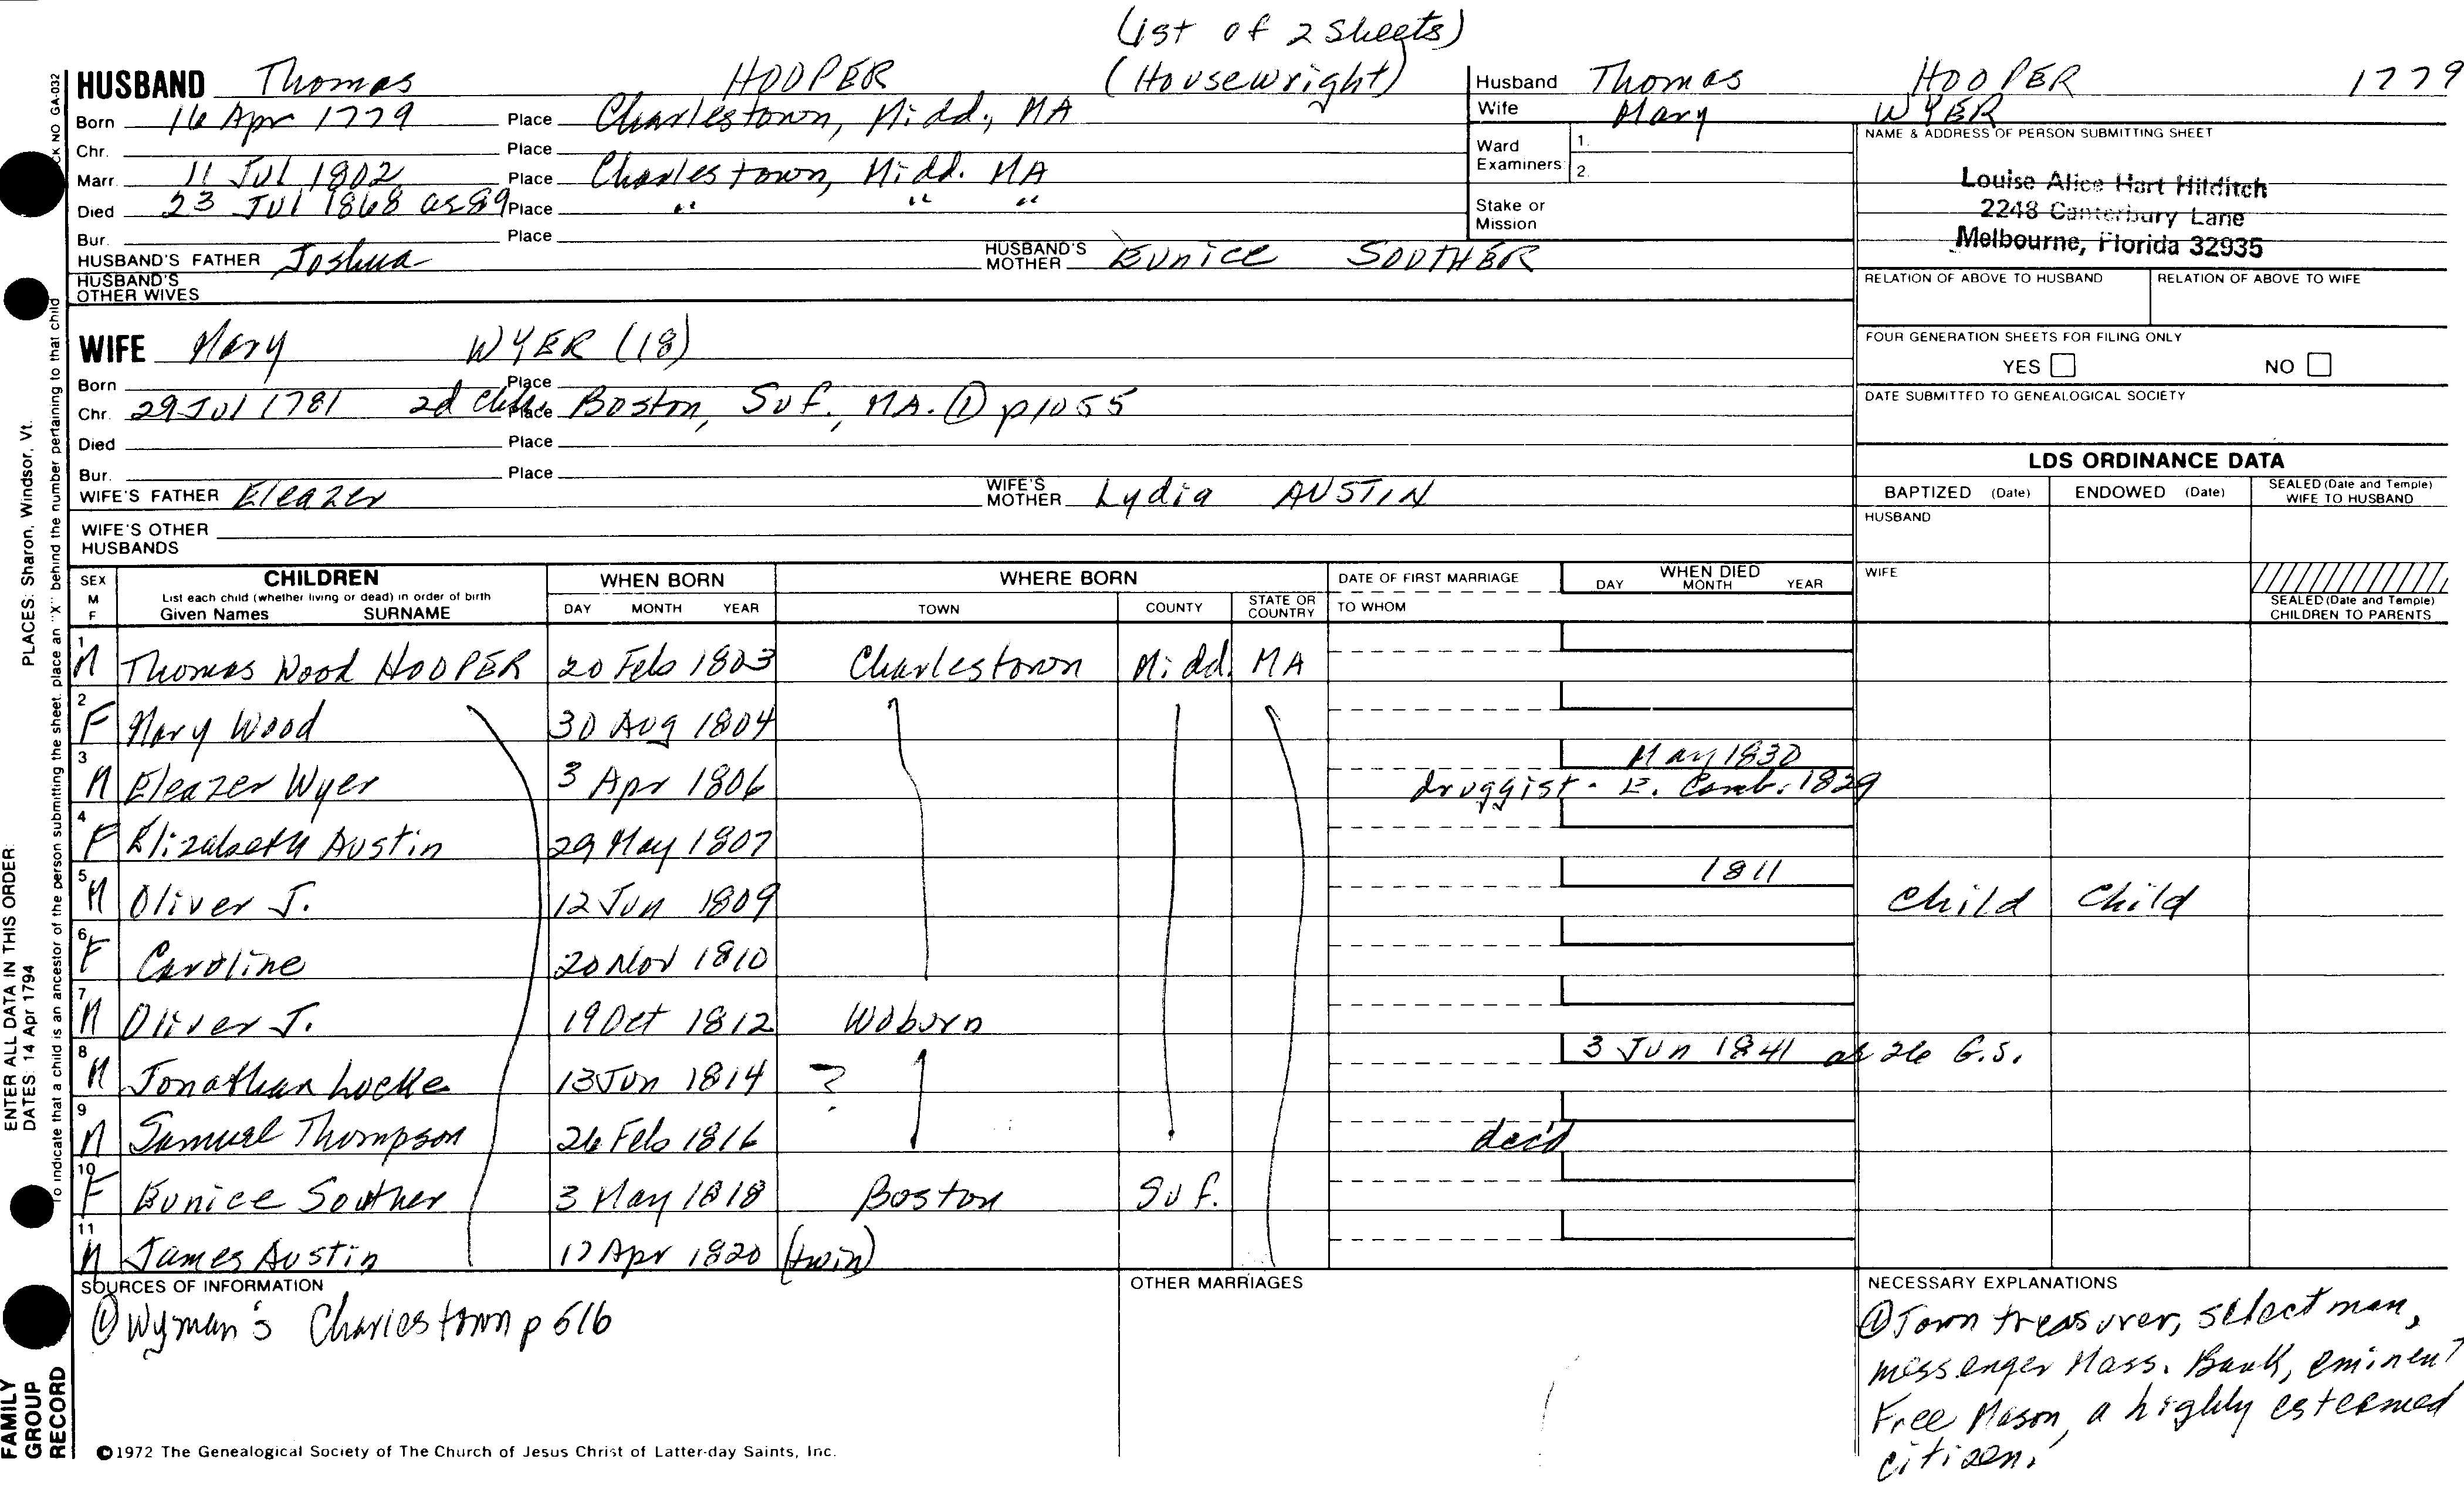 (1st of 2 sheets)
HUSBAND Thomas HOOPER (Housewright)
Born 16 Apr 1779 Place Charlestown, Midd., MA
Chr. Place
Marr. 11 Jul 1802 Place Charlestown, Midd. MA
Died 23 Jul 1868 ae 89 Place " " "
Bur. Place
HUSBAND'S FATHER Joshua HUSBAND'S MOTHER Eunice SOUTHER
HUSBAND'S OTHER WIVES
Husband Thomas HOOPER 1779
Wife Mary WYER
Ward Examiners: 1. 2.
Stake or Mission
NAME & ADDRESS OF PERSON SUBMITTING SHEET
Louise Alice Hart Hilditch
2248 Canterbury Lane
Melbourne, Florida 32935
RELATION OF ABOVE TO HUSBAND RELATION OF ABOVE TO WIFE
FOUR GENERATION SHEETS FOR FILING ONLY
YES NO
DATE SUBMITTED TO GENEALOGICAL SOCIETY
WIFE Mary WYER (18)
Born Place
Chr. 29 Jul 1781 2d Place Boston, Suf., MA. ① p1055
Died Place
Bur. Place
WIFE'S FATHER Eleazer WIFE'S MOTHER Lydia AUSTIN
WIFE'S OTHER HUSBANDS
LDS ORDINANCE DATA
BAPTIZED (Date) ENDOWED (Date) SEALED (Date and Temple) WIFE TO HUSBAND
HUSBAND
WIFE
SEALED (Date and Temple) CHILDREN TO PARENTS
SEX M F CHILDREN WHEN BORN WHERE BORN DATE OF FIRST MARRIAGE WHEN DIED
List each child (whether living or dead) in order of birth
Given Names SURNAME DAY MONTH YEAR TOWN COUNTY STATE OR COUNTRY TO WHOM DAY MONTH YEAR
1 M Thomas Wood HOOPER 20 Feb 1803 Charlestown Midd. MA
2 F Mary Wood 30 Aug 1804
3 M Eleazer Wyer 3 Apr 1806 May 1830
druggist - E. Camb. 1829
4 F Elizabeth Austin 29 May 1807
5 M Oliver J. 12 Jun 1809 1811 Child Child
6 F Caroline 20 Nov 1810
7 M Oliver J. 19 Oct 1812 Woburn
8 M Jonathan Locke 13 Jun 1814 ? 3 Jun 1841 ae 26 G.S.
9 M Samuel Thompson 26 Feb 1816 dec'd
10 F Eunice Souther 3 May 1818 Boston Suf.
11 M James Austin 17 Apr 1820 (twin)
SOURCES OF INFORMATION
① Wyman's Charlestown p 516
OTHER MARRIAGES
NECESSARY EXPLANATIONS
① Town treasurer, selectman,
messenger Mass. Bank, eminent
Free Mason, a highly esteemed
citizen.
©1972 The Genealogical Society of The Church of Jesus Christ of Latter-day Saints, Inc.
FAMILY
GROUP
RECORD
ENTER ALL DATA IN THIS ORDER:
DATES: 14 Apr 1794
PLACES: Sharon, Windsor, Vt.
To indicate that a child is an ancestor of the person submitting the sheet, place an "X" behind the number pertaining to that child
NO. GA-032